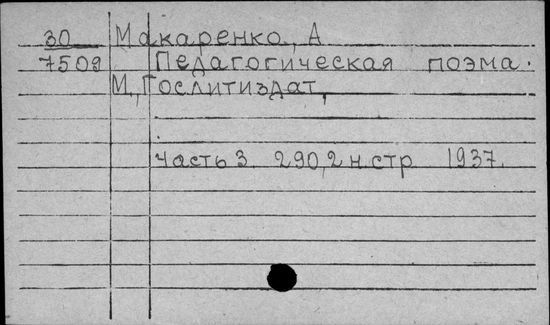 30 Макаренко, А
7509 Педагогическая поэма.
М., Гослитиздат,
часть 3. 290, 2 н. стр 1937.